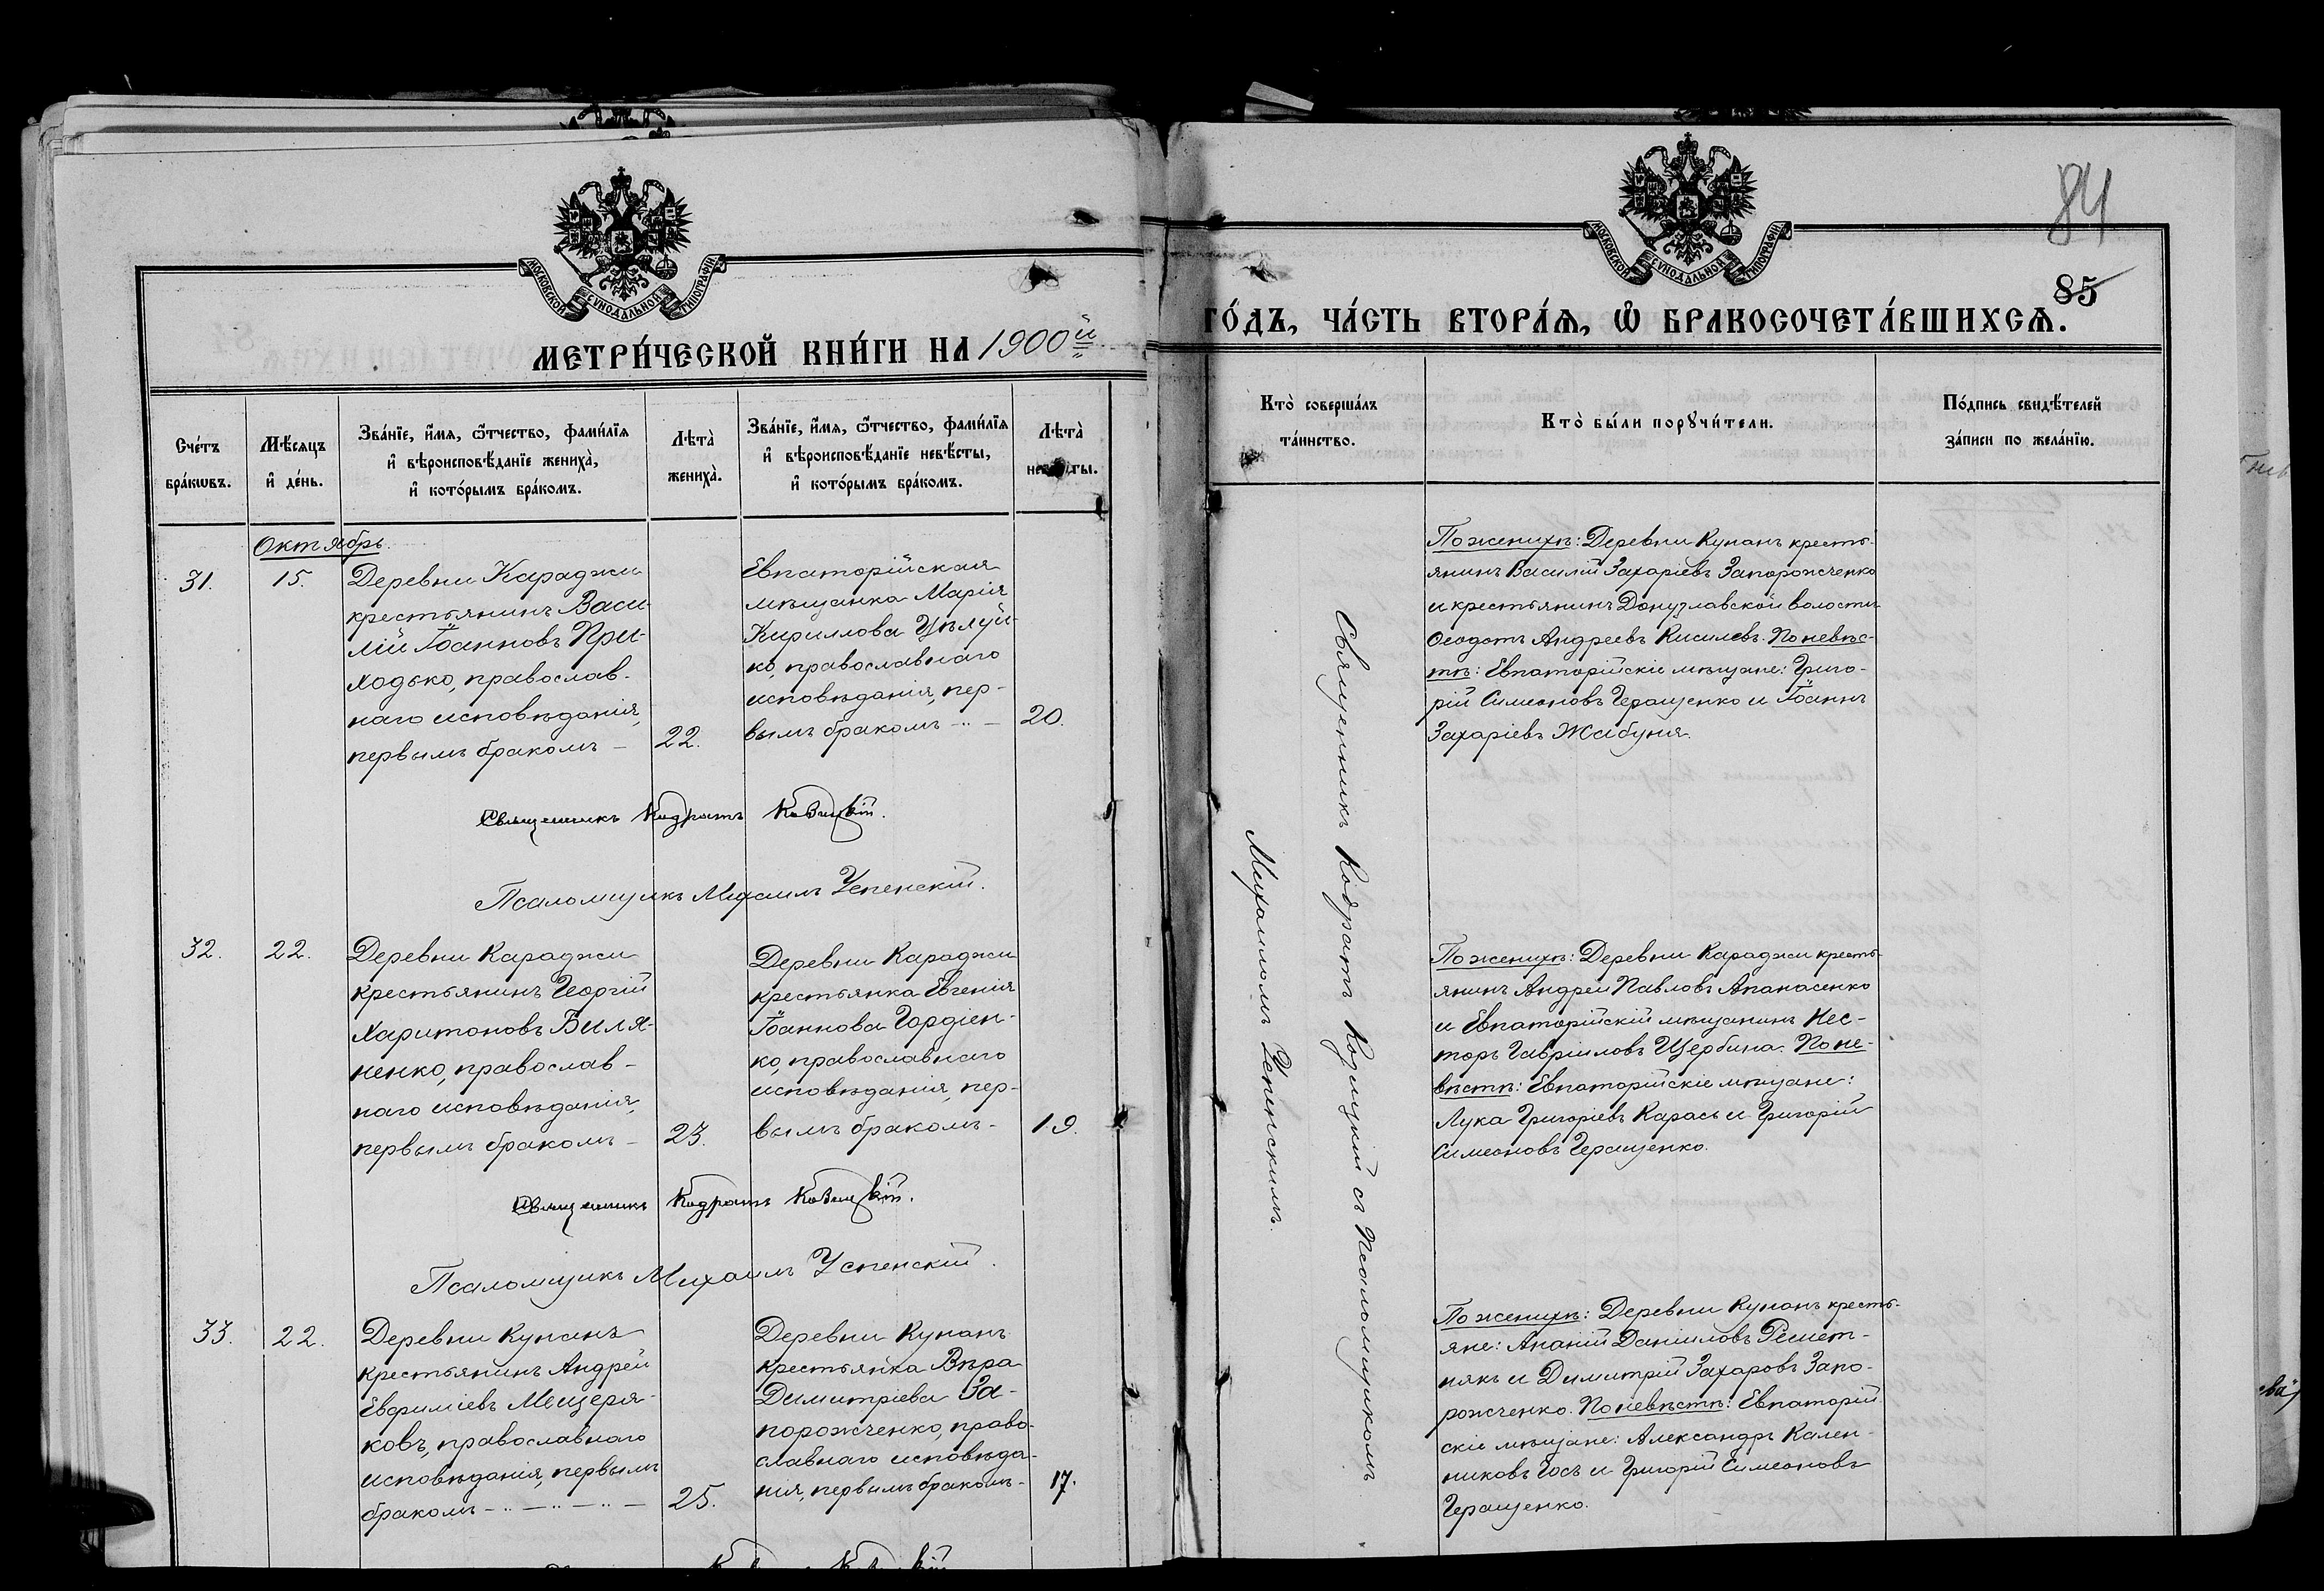 МОСКОВСКОЙ СУНОДАЛЬНОЙ ТИПОГРАФІИ
МЕТРИ́ЧЕСКОЙ КНИ́ГИ НА 1900й
Сче́тъ
бра́кωвъ.
Мѣ́сѧцъ
и҆ де́нь.
Зва́нїе, и҆́мѧ, ѻ҆́тчество, фами́лїѧ
и҆ вѣроисповѣ́данїе жениха̀,
и҆ кото́рымъ бра́комъ.
Лѣта̀
жениха̀.
Зва́нїе, и҆́мѧ, ѻ҆́тчество, фами́лїѧ
и҆ вѣроисповѣ́данїе невѣ́сты,
и҆ кото́рымъ бра́комъ.
Лѣта̀
невѣ́сты.
Октябрь.
31.
15.
Деревни Караджи
крестьянинъ Васи-
лій Іоанновъ При-
ходько, православ-
наго исповѣданія,
первымъ бракомъ —
22.
Евпаторійская
мѣщанка Марія
Кириллова Цѣлуй-
ко, православнаго
исповѣданія, пер-
вымъ бракомъ —
20.
Священникъ Кодратъ Козицкій.
Псаломщикъ Михаилъ Успенскій.
32.
22.
Деревни Караджи
крестьянинъ Георгій
Харитоновъ Биля-
ненко, православ-
наго исповѣданія,
первымъ бракомъ —
23.
Деревни Караджи
крестьянка Евгенія
Іоаннова Гордіен-
ко, православнаго
исповѣданія, пер-
вымъ бракомъ -
19.
Священникъ Кодратъ Козицкій.
Псаломщикъ Михаилъ Успенскій.
33.
22.
Деревни Кунанъ
крестьянинъ Андрей
Евфиміевъ Мещеря-
ковъ, православнаго
исповѣданія, первымъ
бракомъ —
25.
Деревни Кунанъ
крестьянка Вѣра
Димитріева За-
порожченко, право-
славнаго исповѣда-
нія, первымъ бракомъ -
17.
84
85
МОСКОВСКОЙ СУНОДАЛЬНОЙ ТИПОГРАФІИ
ГО́ДЪ, ЧА́СТЬ ВТОРА́Ѧ, Ѽ БРАКОСОЧЕТА́ВШИХСѦ.
Кто̀ соверша́лъ
та́инство.
Кто̀ бы́ли порꙋчи́тели.
По́дпись свидѣ́телей
за́писи по жела́нїю.
Священникъ Кодратъ Козицкій съ Псаломщикомъ
Михаиломъ Успенскимъ.
По женихѣ: Деревни Кунанъ кресть-
янинъ Василій Захаріевъ Запорожченко
и крестьянинъ Донузлавской волости
Ѳеодотъ Андреевъ Киселевъ. По невѣс-
тѣ: Евпаторійскіе мѣщане: Григо-
рій Симеоновъ Геращенко и Іоаннъ
Захаріевъ Жабуня.
По женихѣ: Деревни Караджи кресть-
янинъ Андрей Павловъ Апанасенко
и Евпаторійскій мѣщанинъ Нес-
торъ Гавріиловъ Щербина. По не-
вѣстѣ: Евпаторійскіе мѣщане:
Лука Григоріевъ Карась и Григорій
Симеоновъ Геращенко.
По женихѣ: Деревни Кунанъ кресть-
яне: Ананій Даніиловъ Решет-
някъ и Димитрій Захаровъ Запо-
рожченко. По невѣстѣ: Евпаторій-
скіе мѣщане: Александръ Кален-
никовъ Гось и Григорій Симеоновъ
Геращенко.